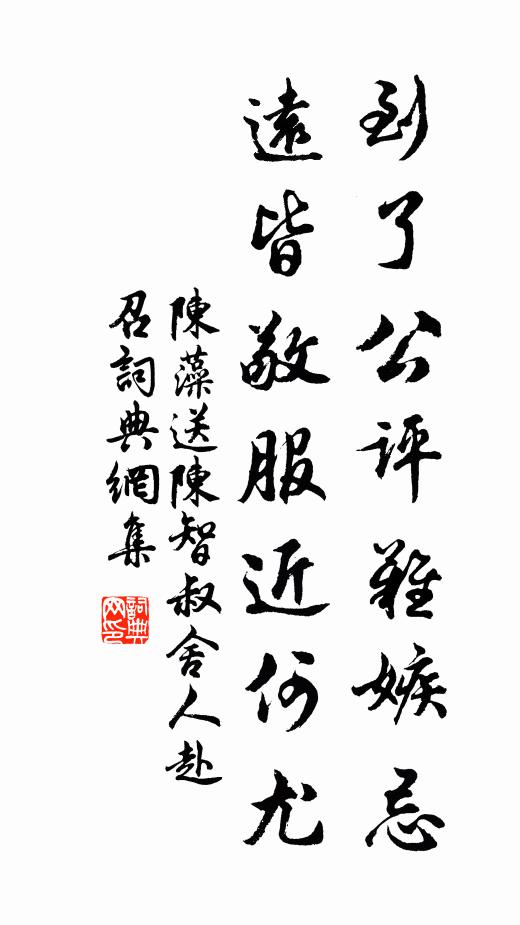 到了公評難嫉忌
遠皆敬服近何尤
陳藻送陳智叔舍人赴
召詞典網集
詞典
网印